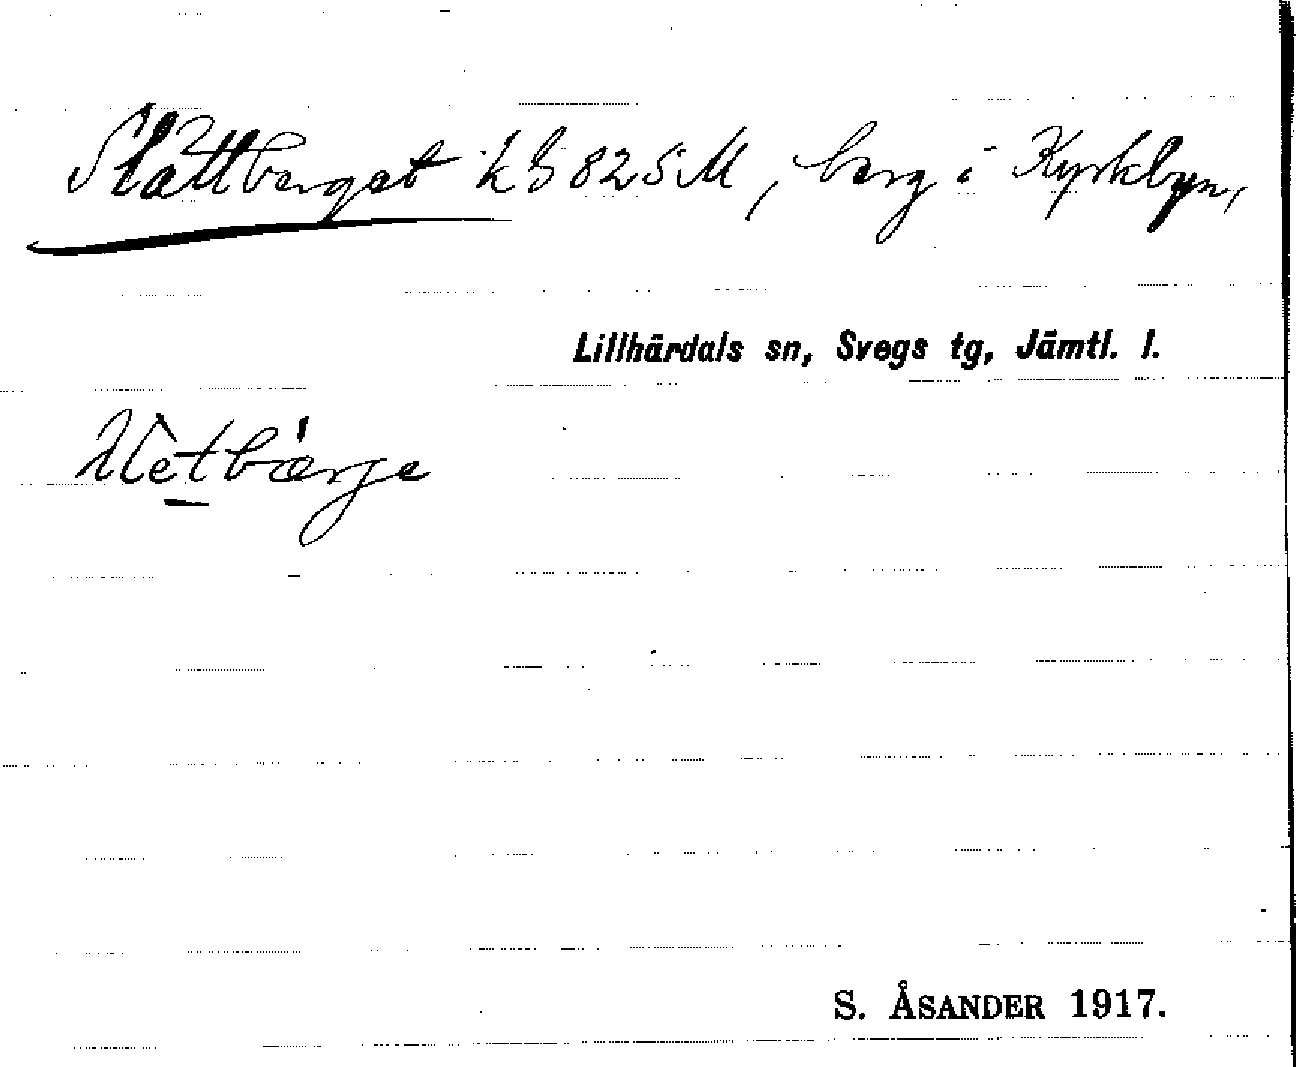 Slättberget LG 825 M, berg i Kyrkbyn,
Lillhärdals sn, Svegs tg, Jämtl. l.
S. ÅSANDER 1917.